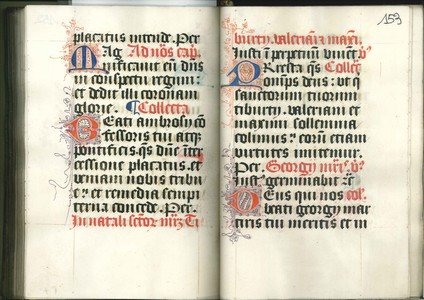 placatus intende. Per
Mag Ad nos cap.
agnificavit eū dn̄s
in conspectu regum:
et dedit illi coronam
glorie. Collecta
Beati ambrosy cō
fessoris tui atqz
pontificis. qs dn̄e īter
cessione placatus. et
veniam nobis tribu
e: et remedia sempi
terna concede. Per.
In natali sctor mr̄z Ti
159
burty. valeriani maxi.
Iusti ī perpetuū vivēt.
Presta qs Collec
omnips deus: ut q
sanctorum tuorum
tiburty. valeriani et
maximi sollemnia
colimus: eorū etiam
virtutes imitemur.
Per. Georgy mr̄is.
Iust germinabit
Deus qui nos col.
beati georgy mar
tiris tui meritis et in